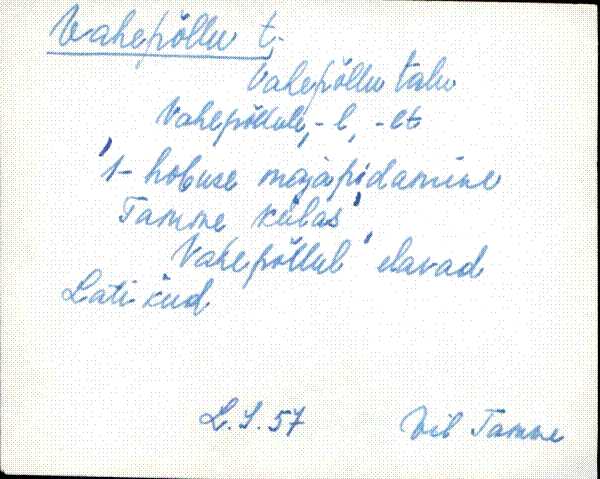 Vahepõllu t.
Vahepõllu talu
Vahepõllule, -l, -lt
1-hobuse majapidamine
Tamme külas
Vahepõllul elavad
Latikud
L.S. 57 Vil Tamme